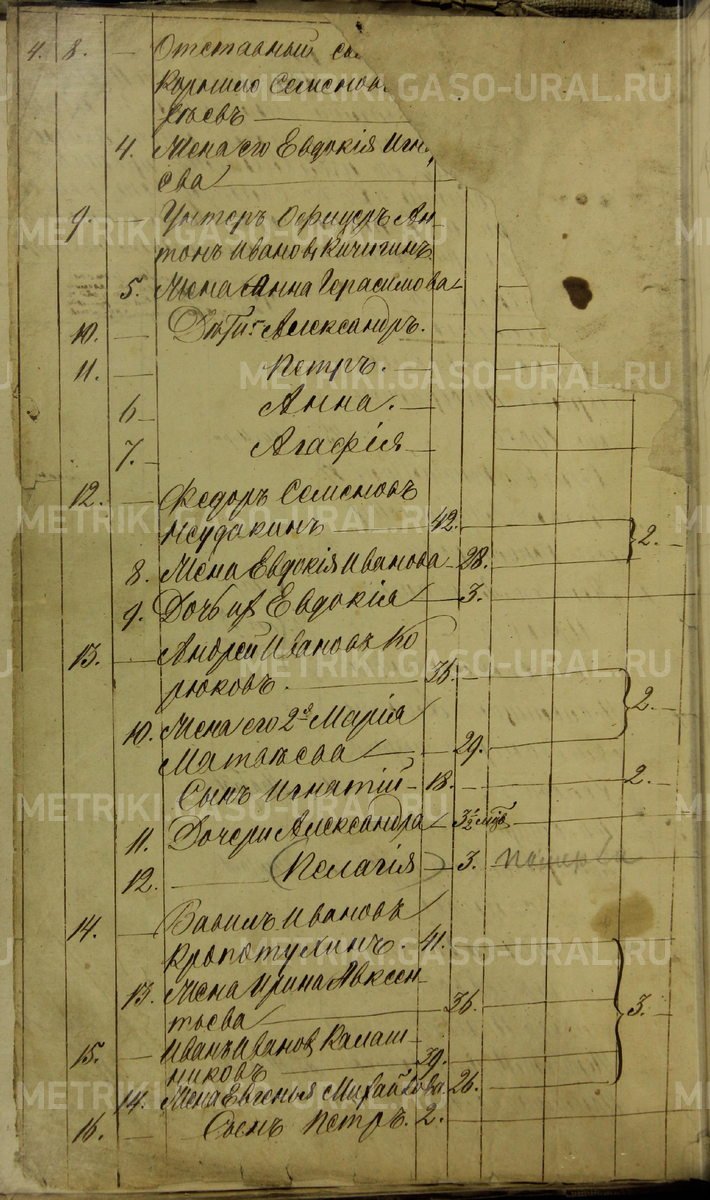 4. 8. — Отставный
Корнило Семенов
4. Жена его Евдокія Игн
ева
9. — Унтеръ Офицеръ Ан-
тонъ Ивановъ Кичигинъ
5. Жена Анна Герасимова
10. — Дѣти: Александръ.
11. — Петръ.
6 — Анна.
7. — Агафія
12. — Федоръ Семеновъ
Неудакинъ 42.
8. Жена Евдокія Иванова 28. 2.
9. Дочь их Евдокія 3.
13. — Андрей Ивановъ Ко
рюковъ. 36.
10. Жена его 2я Марія 2.
Матвѣева 29.
Сынъ Игнатій 18. 2.
11. Дочери Александра 3 1/2
12. Пелагія 3.
14. — Вавилъ Ивановъ
Кропотухинъ. 41.
13. Жена Ирина Авксен-
тьева 36. 3.
15. — Иванъ Ивановъ Калаш-
никовъ 39.
14. Жена Евгенья Михайлова 26.
16. — Сынъ Петръ. 2.
METRIKI.GASO-URAL.RU